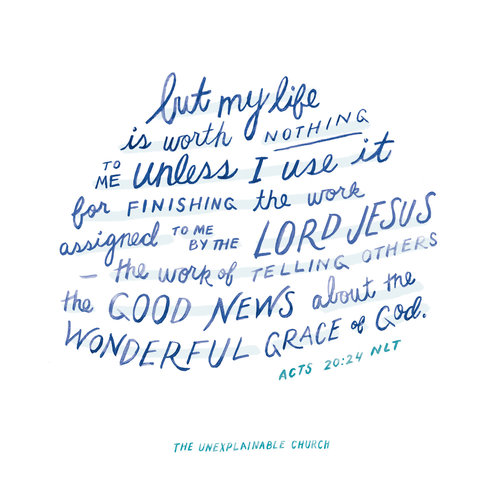 but my life
is worth NOTHING
TO ME unless I use it
for FINISHING the work
assigned TO ME BY THE LORD JESUS
— the work of TELLING OTHERS
the GOOD NEWS about the
WONDERFUL GRACE of God.
ACTS 20:24 NLT
THE UNEXPLAINABLE CHURCH